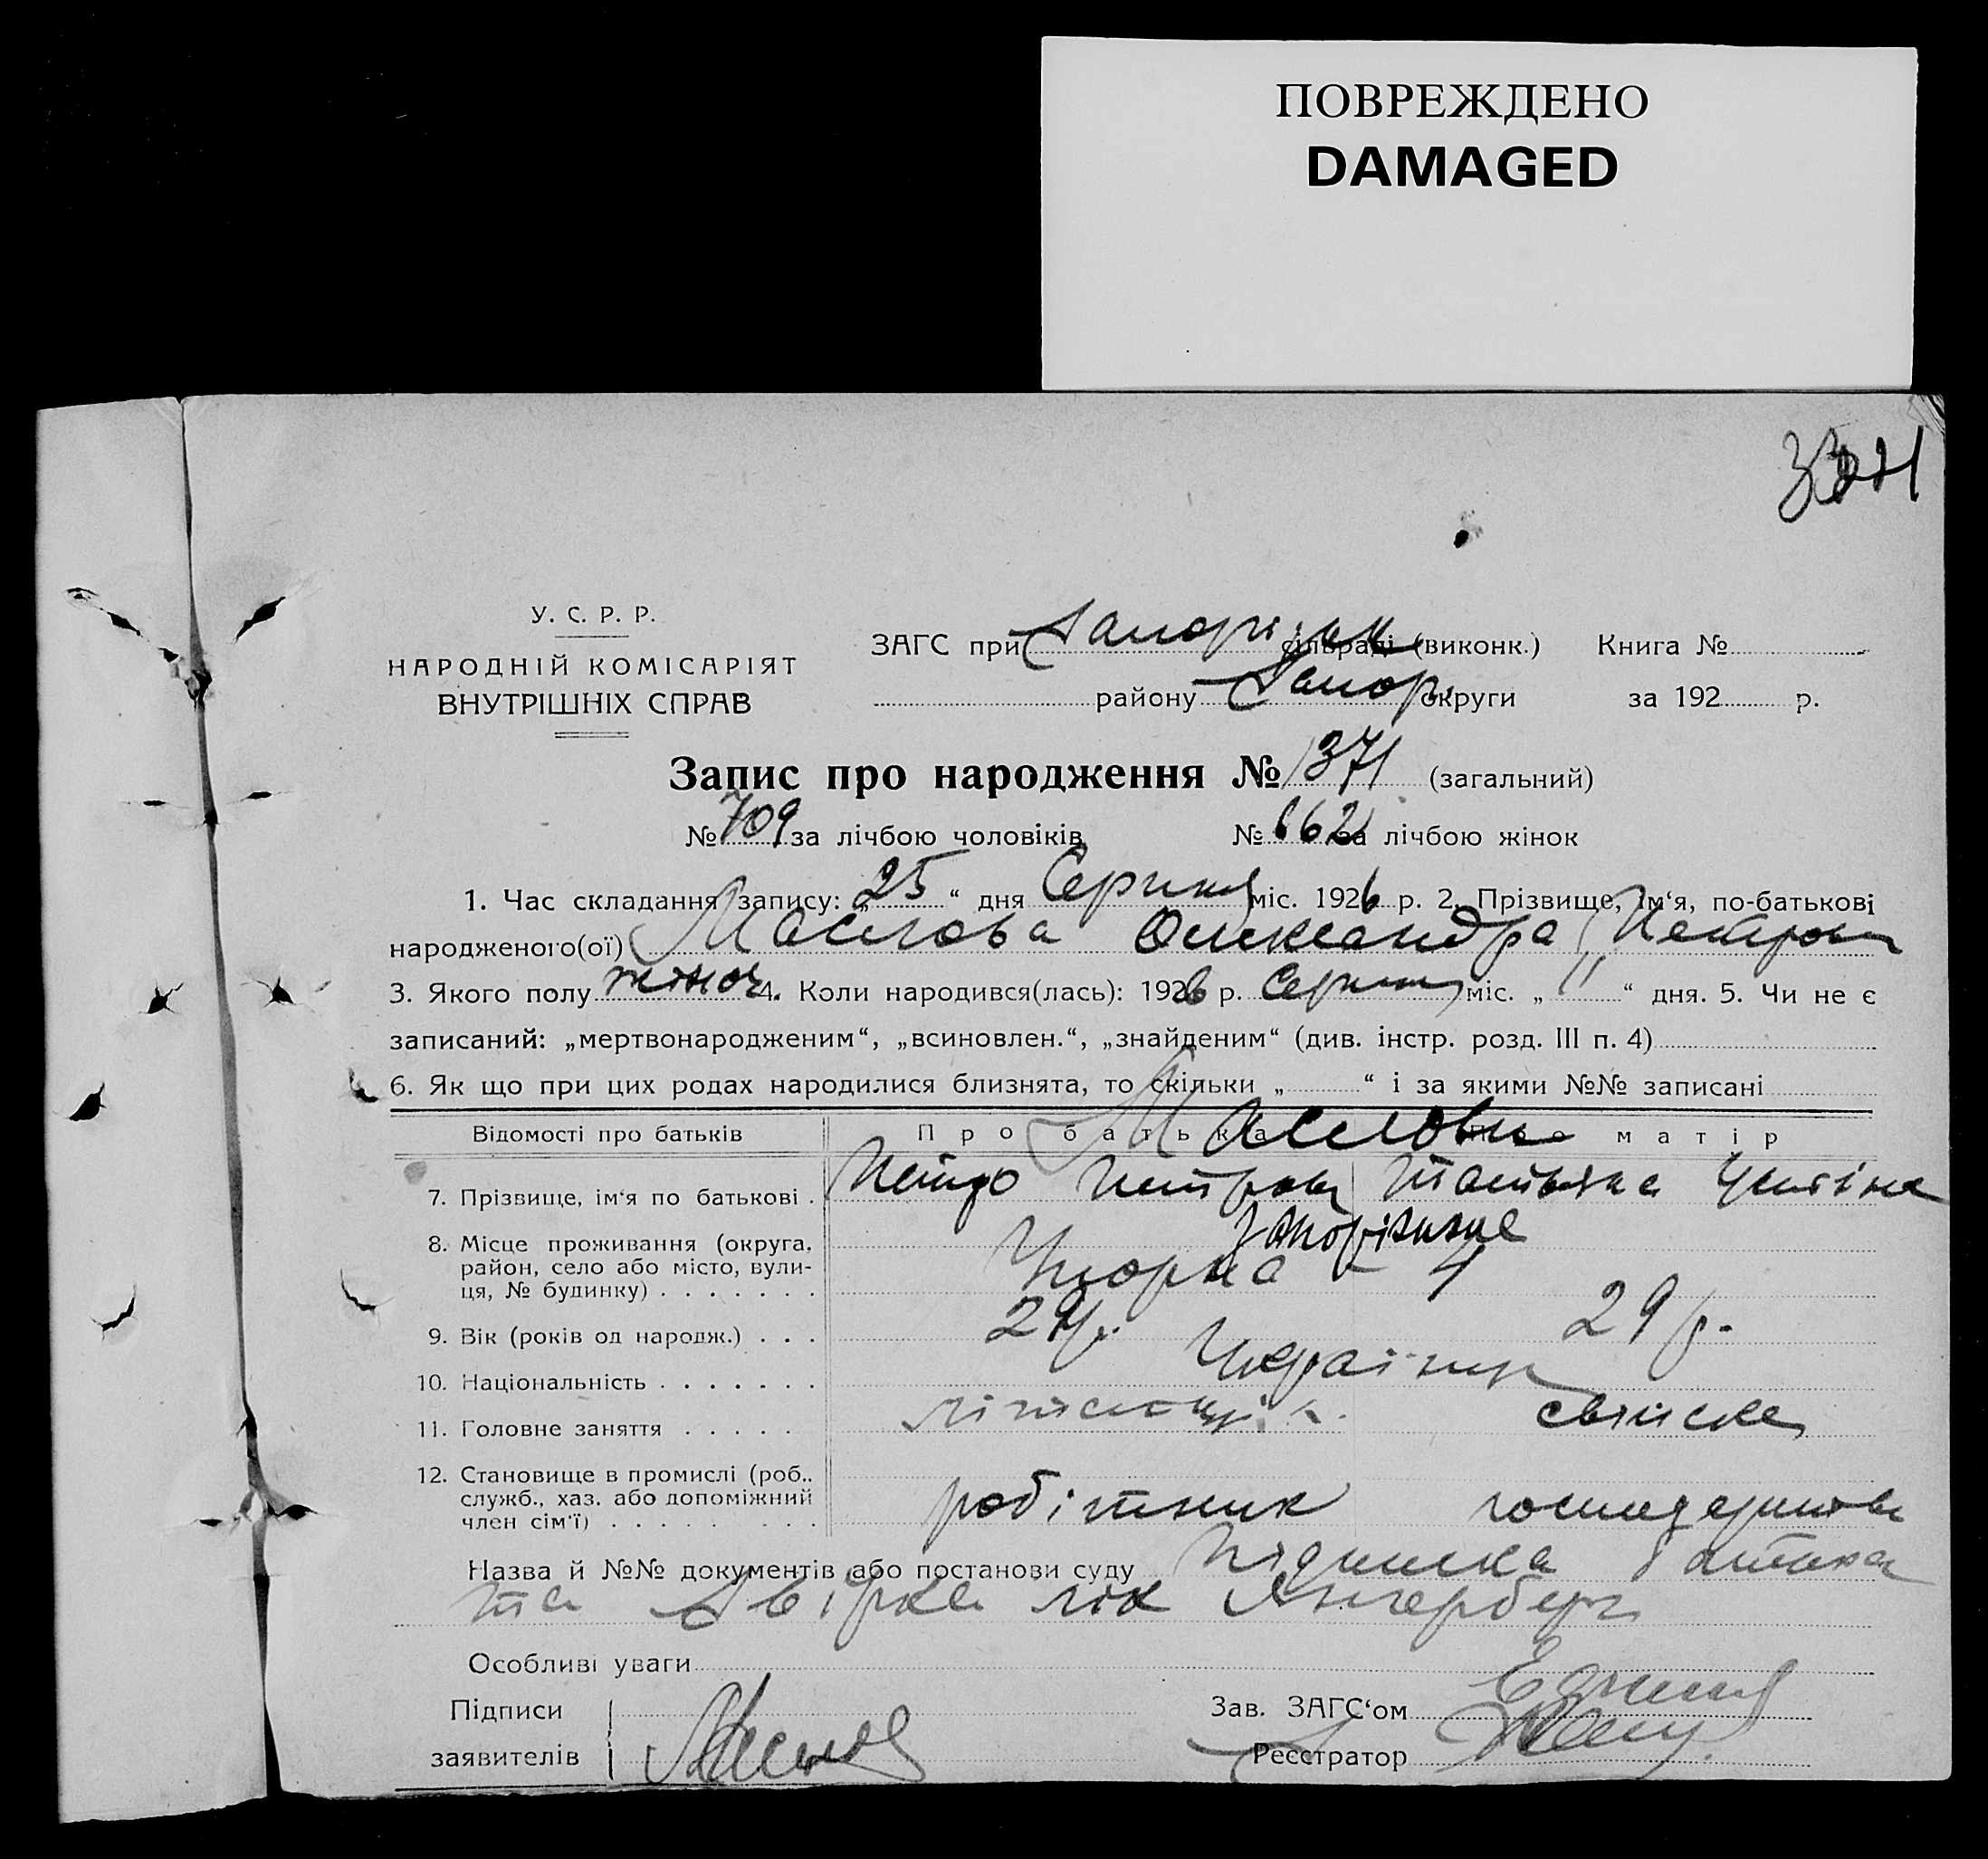 ПОВРЕЖДЕНО
DAMAGED
У. С. Р. Р.
НАРОДНІЙ КОМІСАРІЯТ
ВНУТРІШНІХ СПРАВ
ЗАГС при сільраді (виконк.) Книга №
району Запор. округи за 192 р.
Запис про народження № 1371 (загальний)
№ 709 за лічбою чоловіків № 662 за лічбою жінок
1. Час складання запису: „ 25 “ дня Серпня міс. 1926 р. 2. Прізвище, ім‘я, по-батькові
народженого(ої) Маслова Олександра Петров
3. Якого полу жіноч. 4. Коли народився(лась): 1926 р. Серпня міс. „ 11 “ дня. 5. Чи не є
записаний: „мертвонародженим“, „всиновлен.“, „знайденим“ (див. інстр. розд. III п. 4)
6. Як що при цих родах народилися близнята, то скільки „ “ і за якими №№ записані
Відомості про батьків Про батька Про матір
Маслови
7. Прізвище, ім‘я по батькові . Петро Петров Татьяна
8. Місце проживання (округа, Запоріжжя
район, село або місто, вули-
ця, № будинку) . . . . . . .
9. Вік (років од народж.) . . . 29 р. 29 р.
10. Національність . . . . . . . Українці
11. Головне заняття . . . . . свійске
12. Становище в промислі (роб..
служб., хаз. або допоміжний робітник господарство
член сім‘ї) . . . . . . . .
Назва й №№ документів або постанови суду Підписка батька
та лік
Особливі уваги
Підписи Зав. ЗАГС‘ом
заявителів Маслов Реєстратор